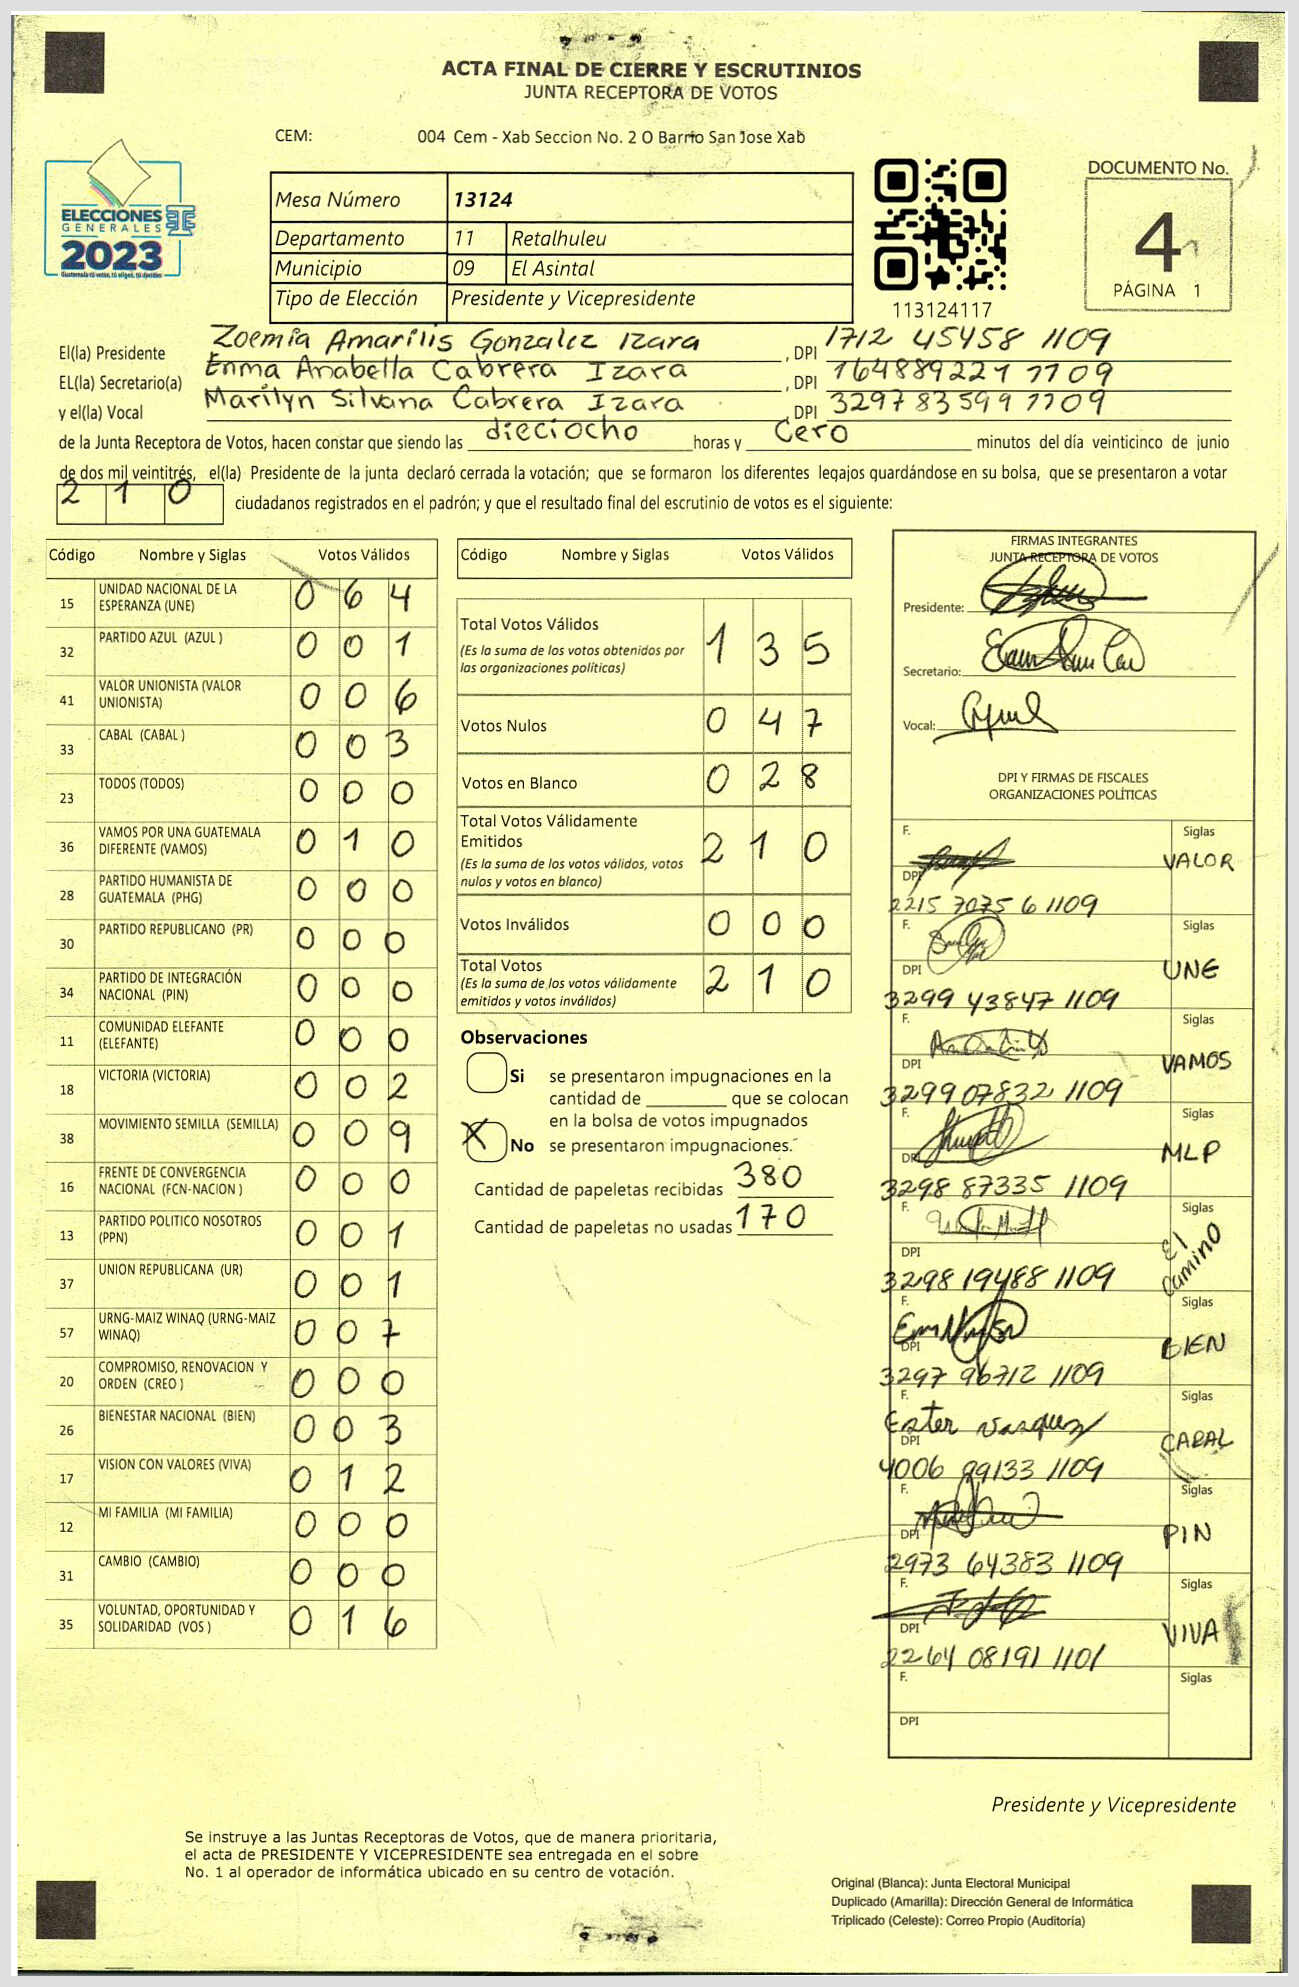 ACTA FINAL DE CIERRE Y ESCRUTINIOS
JUNTA RECEPTORA DE VOTOS
CEM: 004 Cem - Xab Seccion No. 2 O Barrio San Jose Xab
ELECCIONES
GENERALES
2023
Mesa Número 13124
Departamento 11 Retalhuleu
Municipio 09 El Asintal
Tipo de Elección Presidente y Vicepresidente
113124117
DOCUMENTO No.
4
PÁGINA 1
El(la) Presidente Zoemia Amarilis Gonzalez Izara, DPI 1712 45458 1109
EL(la) Secretario(a) Enma Anabella Cabrera Izara, DPI 164889221 1109
y el(la) Vocal Marilyn Silvana Cabrera Izara, DPI 3297 83599 1109
de la Junta Receptora de Votos, hacen constar que siendo las dieciocho horas y Cero minutos del día veinticinco de junio
de dos mil veintitrés, el(la) Presidente de la junta declaró cerrada la votación; que se formaron los diferentes legajos guardándose en su bolsa, que se presentaron a votar
2 1 0 ciudadanos registrados en el padrón; y que el resultado final del escrutinio de votos es el siguiente:
Código Nombre y Siglas Votos Válidos
15 UNIDAD NACIONAL DE LA ESPERANZA (UNE) 0 6 4
32 PARTIDO AZUL (AZUL ) 0 0 1
41 VALOR UNIONISTA (VALOR UNIONISTA) 0 0 6
33 CABAL (CABAL ) 0 0 3
23 TODOS (TODOS) 0 0 0
36 VAMOS POR UNA GUATEMALA DIFERENTE (VAMOS) 0 1 0
28 PARTIDO HUMANISTA DE GUATEMALA (PHG) 0 0 0
30 PARTIDO REPUBLICANO (PR) 0 0 0
34 PARTIDO DE INTEGRACIÓN NACIONAL (PIN) 0 0 0
11 COMUNIDAD ELEFANTE (ELEFANTE) 0 0 0
18 VICTORIA (VICTORIA) 0 0 2
38 MOVIMIENTO SEMILLA (SEMILLA) 0 0 9
16 FRENTE DE CONVERGENCIA NACIONAL (FCN-NACION ) 0 0 0
13 PARTIDO POLITICO NOSOTROS (PPN) 0 0 1
37 UNION REPUBLICANA (UR) 0 0 1
57 URNG-MAIZ WINAQ (URNG-MAIZ WINAQ) 0 0 7
20 COMPROMISO, RENOVACION Y ORDEN (CREO ) 0 0 0
26 BIENESTAR NACIONAL (BIEN) 0 0 3
17 VISION CON VALORES (VIVA) 0 1 2
12 MI FAMILIA (MI FAMILIA) 0 0 0
31 CAMBIO (CAMBIO) 0 0 0
35 VOLUNTAD, OPORTUNIDAD Y SOLIDARIDAD (VOS ) 0 1 6
Código Nombre y Siglas Votos Válidos
Total Votos Válidos 1 3 5
(Es la suma de los votos obtenidos por
las organizaciones políticas)
Votos Nulos 0 4 7
Votos en Blanco 0 2 8
Total Votos Válidamente
Emitidos 2 1 0
(Es la suma de los votos válidos, votos
nulos y votos en blanco)
Votos Inválidos 0 0 0
Total Votos 2 1 0
(Es la suma de los votos válidamente
emitidos y votos inválidos)
Observaciones
Si se presentaron impugnaciones en la
cantidad de ________ que se colocan
en la bolsa de votos impugnados
X No se presentaron impugnaciones.
Cantidad de papeletas recibidas 380
Cantidad de papeletas no usadas 170
FIRMAS INTEGRANTES
JUNTA RECEPTORA DE VOTOS
Presidente:
Secretario:
Vocal:
DPI Y FIRMAS DE FISCALES
ORGANIZACIONES POLÍTICAS
F. Siglas
VALOR
DPI
2215 7075 6 1109
F. Siglas
UNE
DPI
3299 43847 1109
F. Siglas
VAMOS
DPI
3299 07832 1109
F.
MLP
DPI
3298 87335 1109
F. Siglas
El Camino
DPI
3298 19488 1109
F. Siglas
BIEN
DPI
3297 96712 1109
F. Siglas
Ester Vasquez
CABAL
DPI
4006 99133 1109
F. Siglas
PIN
DPI
2973 64383 1109
F. Siglas
VIVA
DPI
2264 08191 1101
F. Siglas
DPI
Presidente y Vicepresidente
Se instruye a las Juntas Receptoras de Votos, que de manera prioritaria,
el acta de PRESIDENTE Y VICEPRESIDENTE sea entregada en el sobre
No. 1 al operador de informática ubicado en su centro de votación.
Original (Blanca): Junta Electoral Municipal
Duplicado (Amarilla): Dirección General de Informática
Triplicado (Celeste): Correo Propio (Auditoría)